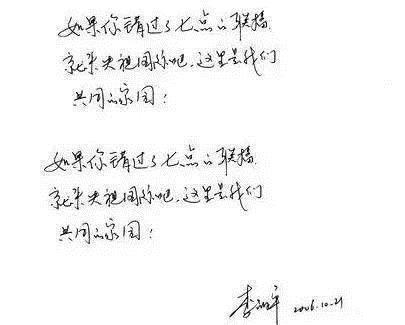 如果你错过了七点的联播
就来央视国际吧,这里是我们
共同的家园!
如果你错过了七点的联播
就来央视国际吧,这里是我们
共同的家园!
李 2006.10.21